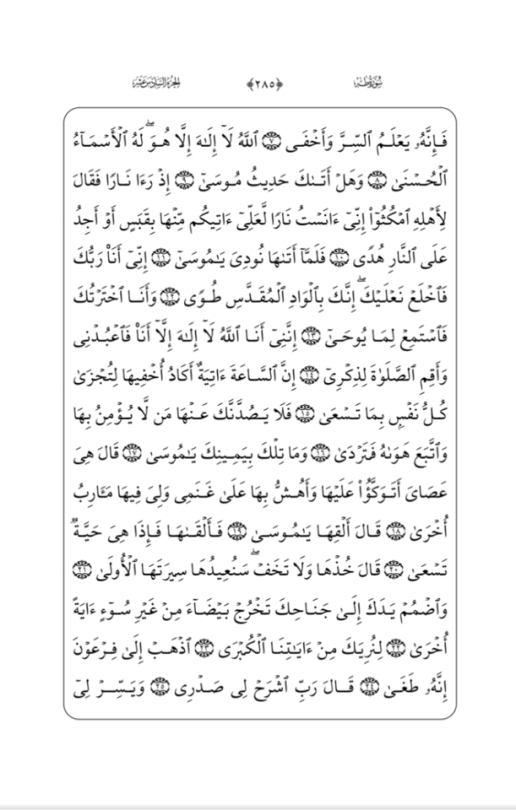 سُورَةُ طه ﴿٢٨٥﴾ الجزء السادس عشر
فَإِنَّهُۥ يَعْلَمُ ٱلسِّرَّ وَأَخْفَى ٧ ٱللَّهُ لَآ إِلَٰهَ إِلَّا هُوَۖ لَهُ ٱلْأَسْمَآءُ
ٱلْحُسْنَىٰ ٨ وَهَلْ أَتَىٰكَ حَدِيثُ مُوسَىٰٓ ٩ إِذْ رَءَا نَارًا فَقَالَ
لِأَهْلِهِ ٱمْكُثُوٓا۟ إِنِّىٓ ءَانَسْتُ نَارًا لَّعَلِّىٓ ءَاتِيكُم مِّنْهَا بِقَبَسٍ أَوْ أَجِدُ
عَلَى ٱلنَّارِ هُدًى ١٠ فَلَمَّآ أَتَىٰهَا نُودِىَ يَٰمُوسَىٰٓ ١١ إِنِّىٓ أَنَا۠ رَبُّكَ
فَٱخْلَعْ نَعْلَيْكَۖ إِنَّكَ بِٱلْوَادِ ٱلْمُقَدَّسِ طُوًى ١٢ وَأَنَا ٱخْتَرْتُكَ
فَٱسْتَمِعْ لِمَا يُوحَىٰٓ ١٣ إِنَّنِىٓ أَنَا ٱللَّهُ لَآ إِلَٰهَ إِلَّآ أَنَا۠ فَٱعْبُدْنِى
وَأَقِمِ ٱلصَّلَوٰةَ لِذِكْرِىٓ ١٤ إِنَّ ٱلسَّاعَةَ ءَاتِيَةٌ أَكَادُ أُخْفِيهَا لِتُجْزَىٰ
كُلُّ نَفْسٍۭ بِمَا تَسْعَىٰ ١٥ فَلَا يَصُدَّنَّكَ عَنْهَا مَن لَّا يُؤْمِنُ بِهَا
وَٱتَّبَعَ هَوَىٰهُ فَتَرْدَىٰ ١٦ وَمَا تِلْكَ بِيَمِينِكَ يَٰمُوسَىٰ ١٧ قَالَ هِىَ
عَصَاىَ أَتَوَكَّؤُا۟ عَلَيْهَا وَأَهُشُّ بِهَا عَلَىٰ غَنَمِى وَلِىَ فِيهَا مَـَٔارِبُ
أُخْرَىٰ ١٨ قَالَ أَلْقِهَا يَٰمُوسَىٰ ١٩ فَأَلْقَىٰهَا فَإِذَا هِىَ حَيَّةٌ
تَسْعَىٰ ٢٠ قَالَ خُذْهَا وَلَا تَخَفْۖ سَنُعِيدُهَا سِيرَتَهَا ٱلْأُولَىٰ ٢١
وَٱضْمُمْ يَدَكَ إِلَىٰ جَنَاحِكَ تَخْرُجْ بَيْضَآءَ مِنْ غَيْرِ سُوٓءٍ ءَايَةً
أُخْرَىٰ ٢٢ لِنُرِيَكَ مِنْ ءَايَٰتِنَا ٱلْكُبْرَى ٢٣ ٱذْهَبْ إِلَىٰ فِرْعَوْنَ
إِنَّهُۥ طَغَىٰ ٢٤ قَالَ رَبِّ ٱشْرَحْ لِى صَدْرِى ٢٥ وَيَسِّرْ لِىٓ